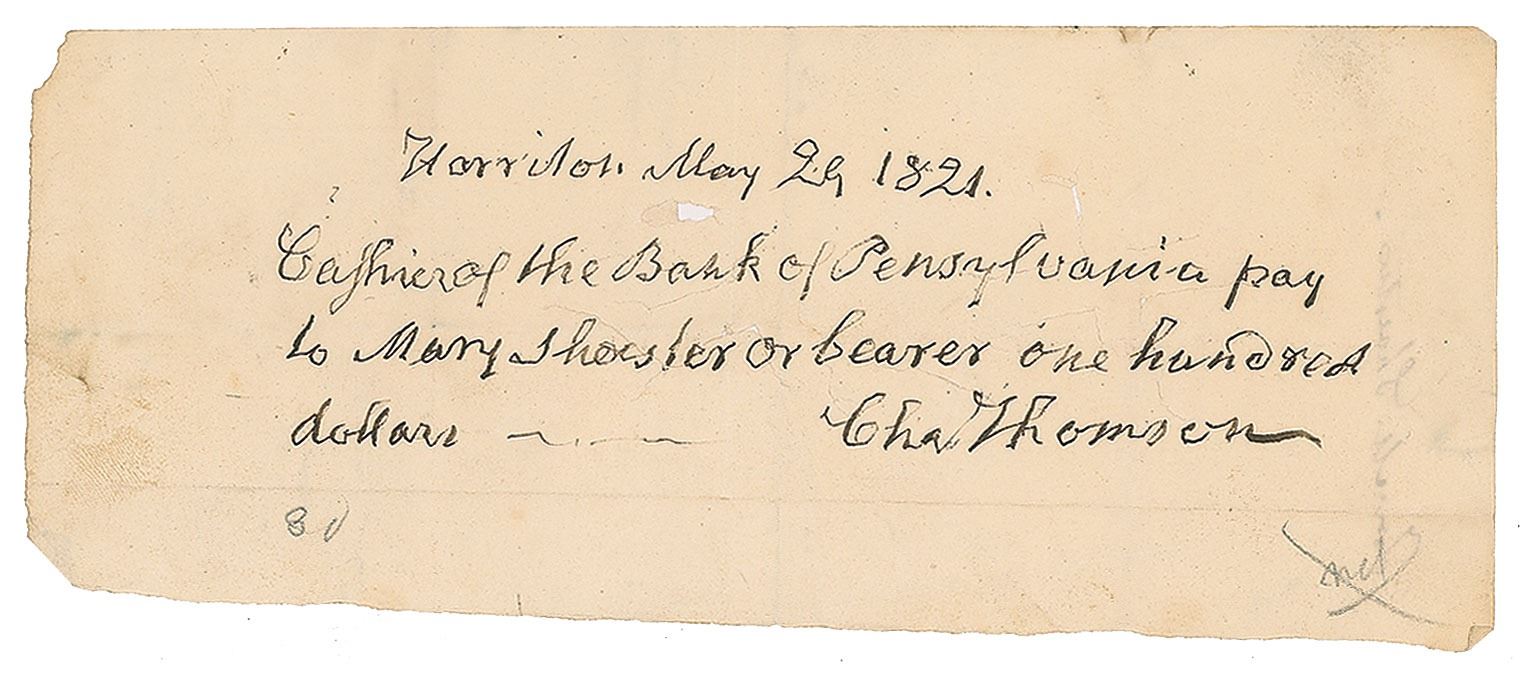 Harriton May 29 1821.
Cashier of the Bank of Pensylvania pay
to Mary Shoester or bearer one hundred
dollars Cha Thomson